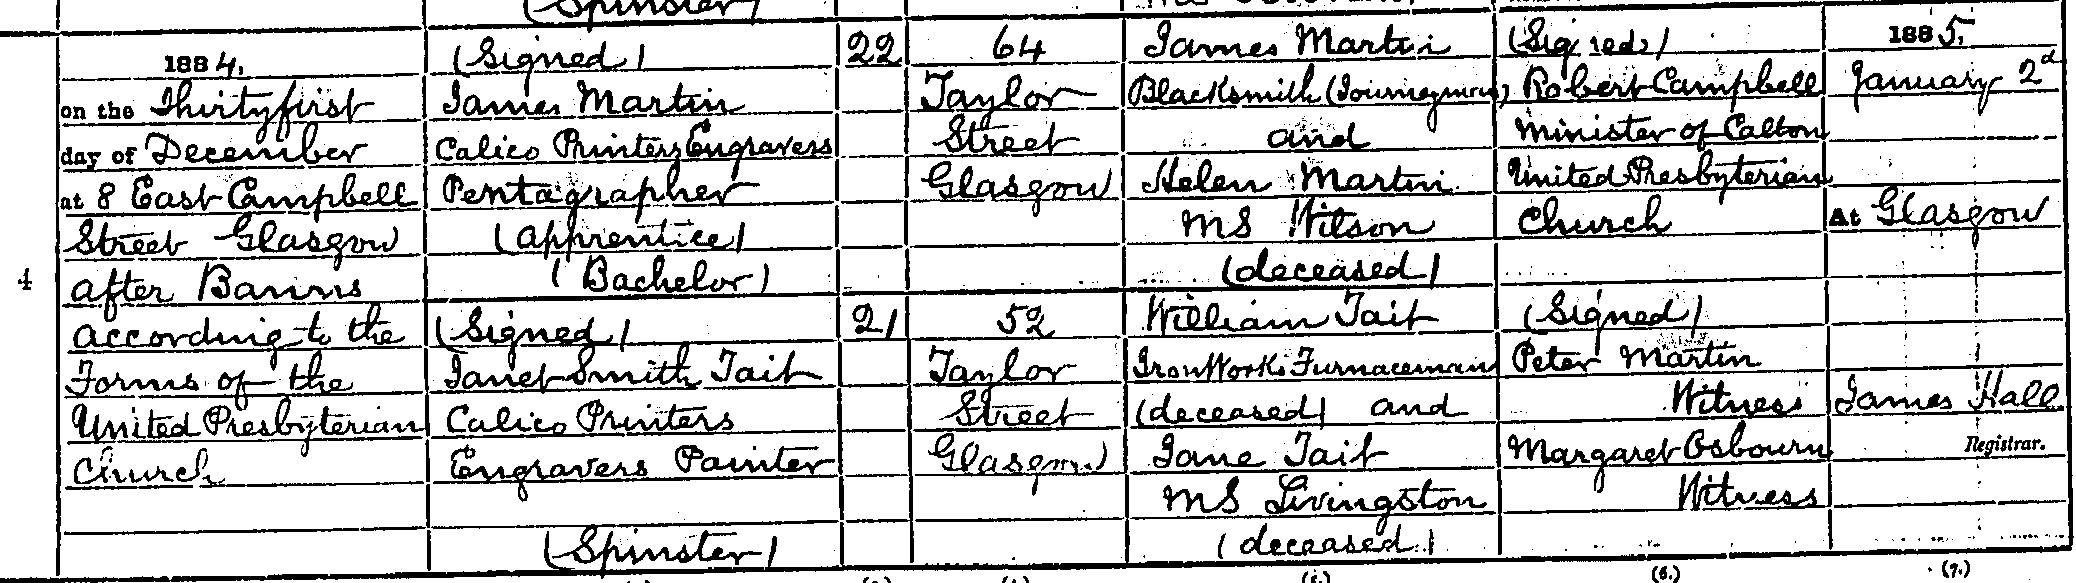 (Spinster)
4
1884,
on the Thirtyfirst
day of December
at 8 East Campbell
Street Glasgow
after Banns
according to the
Forms of the
United Presbyterian
Church
(Signed)
James Martin
Calico Printers Engravers
Pentagrapher
(apprentice)
(Bachelor)
(Signed)
Janet Smith Tait
Calico Printers
Engravers Painter
(Spinster)
22
21
64
Taylor
Street
Glasgow
52
Taylor
Street
Glasgow
James Martin
Blacksmith (Journeyman)
and
Helen Martin
MS Wilson
(deceased)
William Tait
IronWorks Furnaceman
(deceased) and
Jane Tait
MS Livingston
(deceased)
(Signed)
Robert Campbell
Minister of Calton
United Presbyterian
Church
(Signed)
Peter Martin
Witness
Margaret Osbourn
Witness
1885,
January 2d
At Glasgow
James Hall
Registrar.
(6.)
(7.)